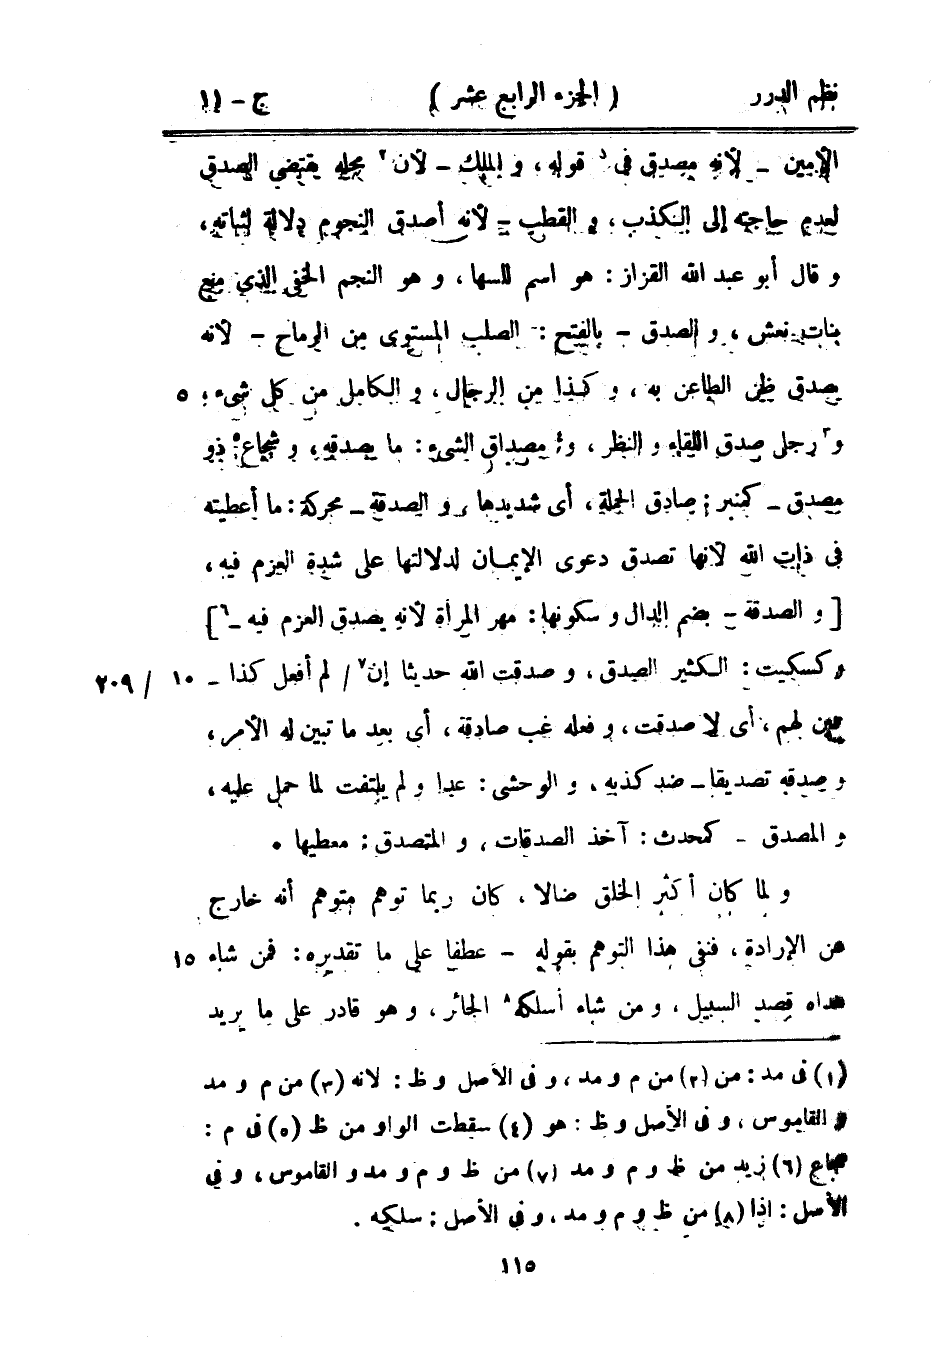 نظم الدرر ( الجزء الرابع عشر ) ج - ١١
الأمين ـ لأنه مصدق فى١ قوله ، و الملك ـ لأن٢ محله يقتضى الصدق
لعدم حاجته إلى الكذب ، و القطب ـ لأنه أصدق النجوم دلالة لثباته ،
و قال أبو عبد الله القزاز : هو اسم للسها ، و هو النجم الخفى الذي مع
بنات نعش ، و الصدق ـ بالفتح : الصلب المستوى من الرماح ـ لأنه
يصدق ظن الطاعن به ، و كذا من الرجال ، و الكامل من كل شىء ؛ ٥
و٣ رجل صدق اللقاء و النظر ، و٤ مصداق الشىء : ما يصدقه ، و شجاع٥ ذو
مصدق ـ كمنبر : صادق الحملة ، أى شديدها ، و الصدقة ـ محركة : ما أعطيته
فى ذات الله لأنها تصدق دعوى الإيمان لدلالتها على شدة العزم فيه ،
[ و الصدقة ـ بضم الدال و سكونها : مهر المرأة لأنه يصدق العزم فيه ـ٦ ]
و كسكيت : الكثير الصدق ، و صدقت الله حديثا إن٧ / لم أفعل كذا ـ ١٠ / ٢٠٩
يمين لهم ، أى لا صدقت ، و فعله غب صادقة ، أى بعد ما تبين له الأمر ،
و صدقه تصديقا ـ ضد كذبه ، و الوحشى : عدا و لم يلتفت لما حمل عليه ،
و المصدق ـ كمحدث : آخذ الصدقات ، و المتصدق : معطيها .
و لما كان أكثر الخلق ضالا ، كان ربما توهم متوهم أنه خارج
عن الإرادة ، فنفى هذا التوهم بقوله ـ عطفا على ما تقديره : فمن شاء ١٥
هداه قصد السبيل ، و من شاء أسلكه٨ الجائر ، و هو قادر على ما يريد
(١) فى مد : من (٢) من م و مد ، و فى الأصل و ظ : لانه (٣) من م و مد
و القاموس ، و فى الأصل و ظ : هو (٤) سقطت الواو من ظ (٥) فى م :
شجاع (٦) زيد من ظ و م و مد (٧) من ظ و م و مد و القاموس ، و فى
الأصل : اذا (٨) من ظ و م و مد ، و فى الأصل : سلكه .
١١٥